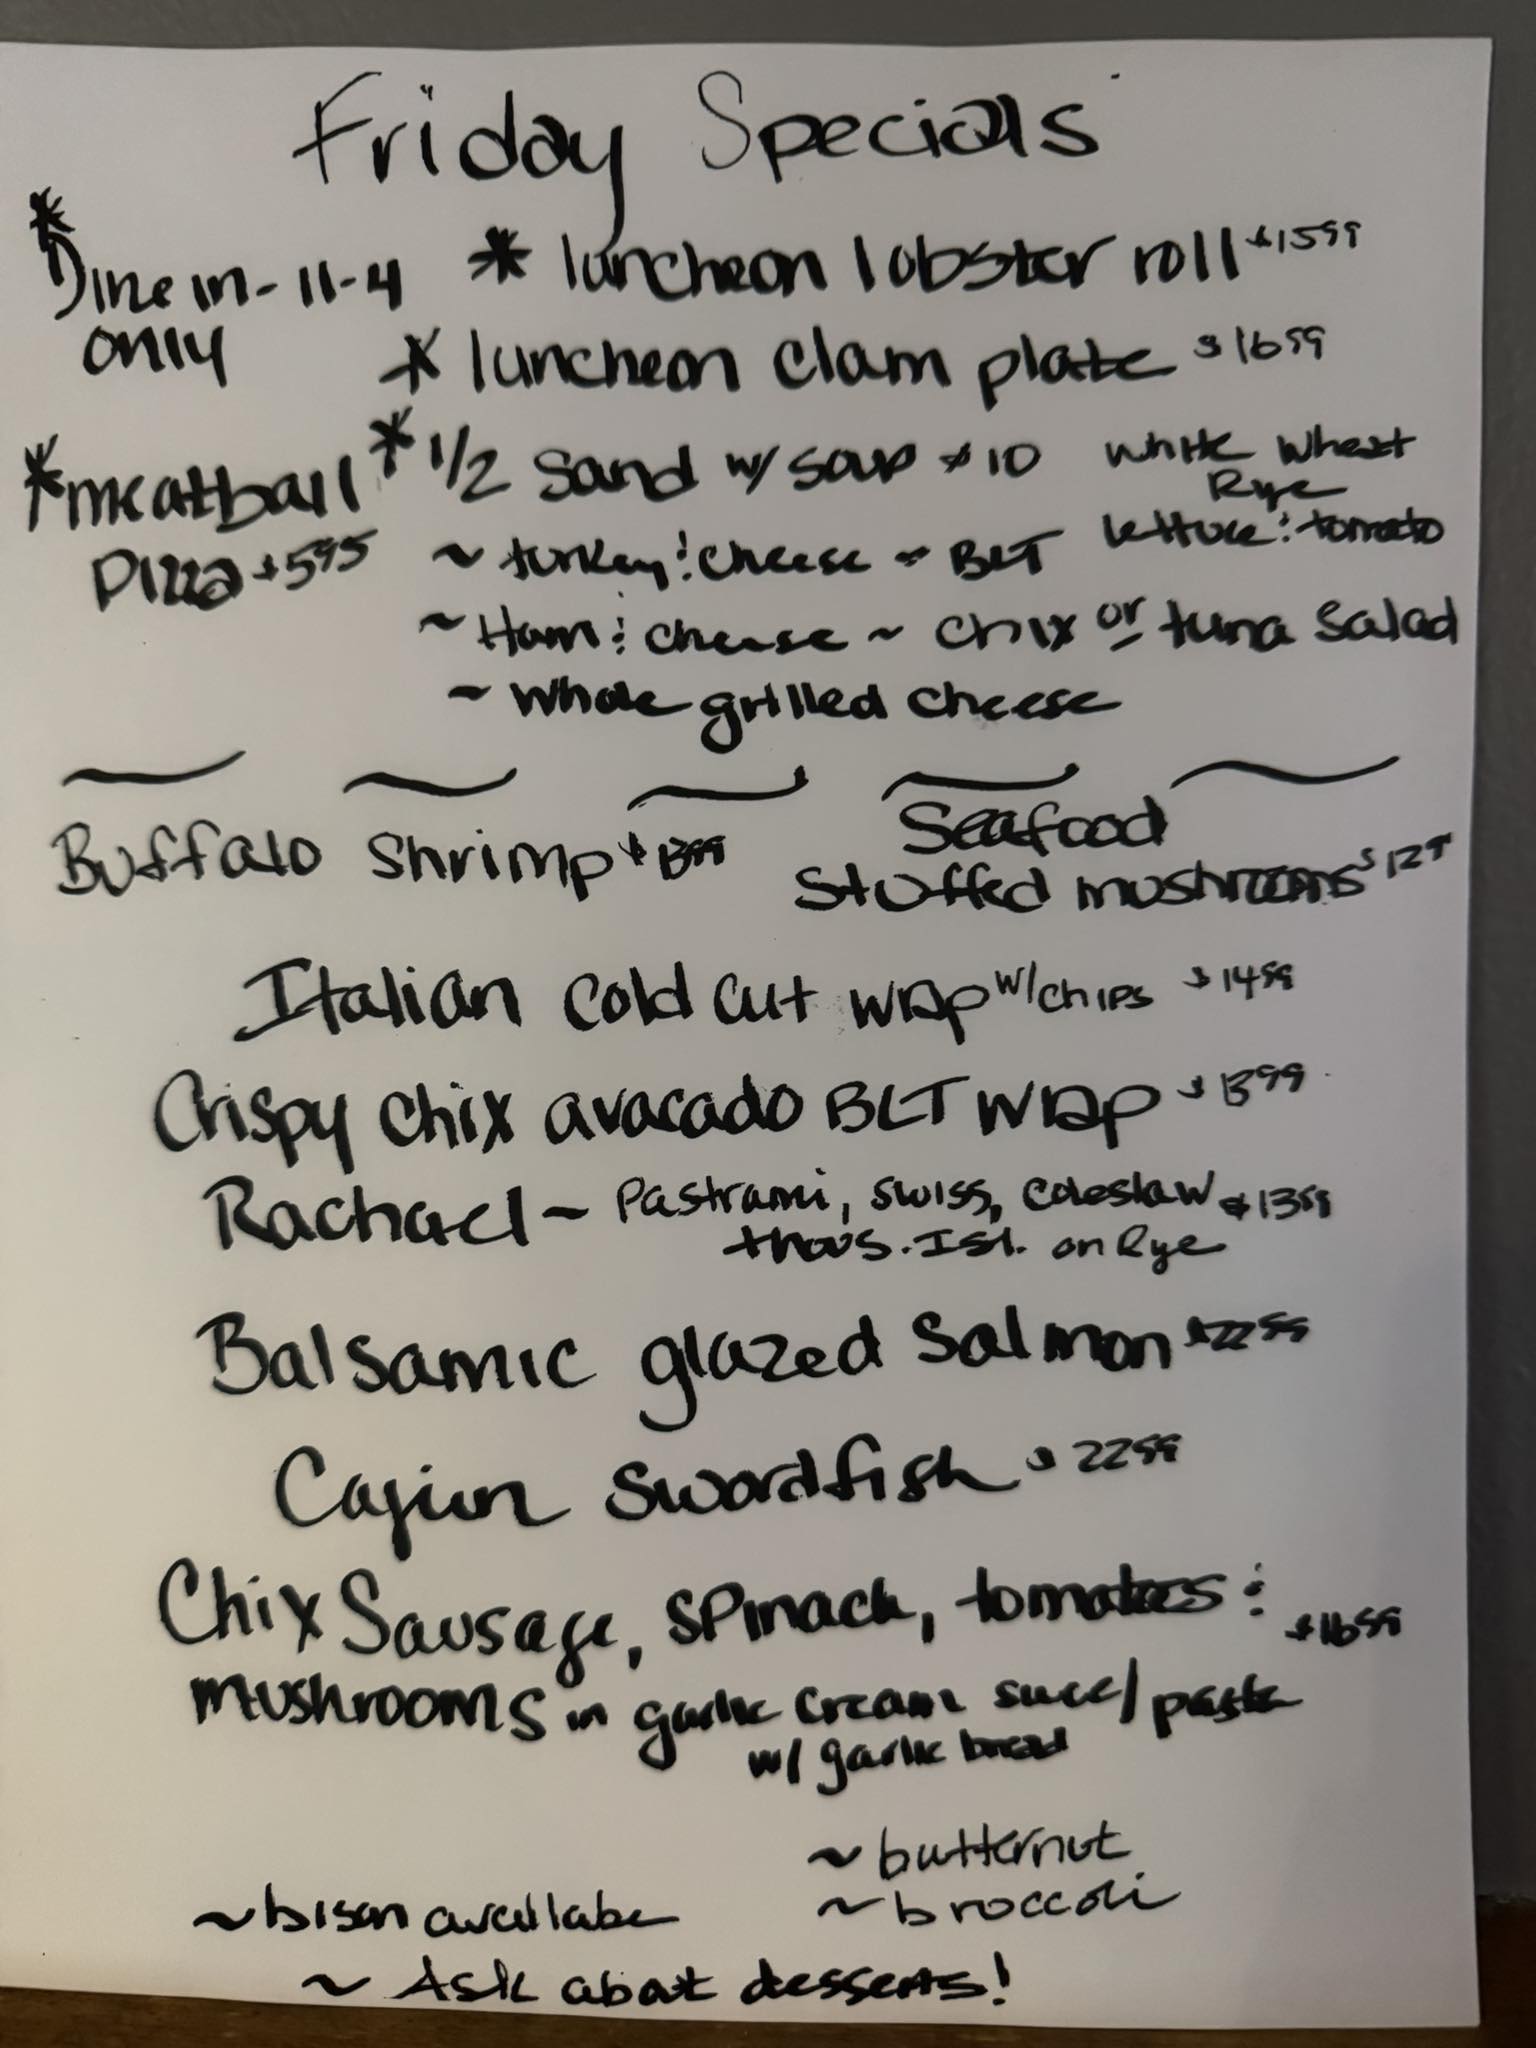 Friday Specials
* Dine in - 11-4 only
* luncheon lobster roll $15.99
* luncheon clam plate $16.99
* meatball pizza $5.95
* 1/2 Sand w/ soup $10
White Wheat
Rye
lettuce & tomato
~ turkey & cheese ~ BLT
~ Ham & cheese ~ chix or tuna salad
~ whole grilled cheese
Buffalo Shrimp $13.99
Seafood
Stuffed mushrooms $12.99
Italian cold cut wrap w/ chips $14.99
Crispy chix avacado BLT wrap $13.99
Rachael ~ Pastrami, swiss, coleslaw $13.99
thous. Isl. on Rye
Balsamic glazed salmon $22.99
Cajun swordfish $22.99
Chix Sausage, spinach, tomatoes &
mushrooms in garlic cream sauce / pasta $16.99
w/ garlic bread
~ butternut
~ broccoli
~ bison available
~ Ask about desserts!